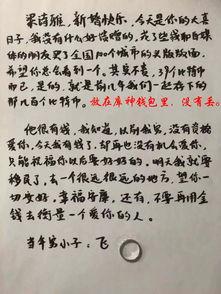 梁诗雅，新婚快乐，今天是你的大喜
日子，我没有什么好送你的，花了些钱和媒
体的朋友买了全国100个城市的头版版面，
希望你总会看到一个。其实不贵，39个比特币
而已，是的，就是前几年我们一起存下的
那几百个比特币。放在库神钱包里，没有丢。
他很有钱，我知道，以前我穷，没有资格
爱你，今天我有钱了，却再也没有机会爱你，
只能祝福你以后要好好的。明天我就要
移民了，去一个很远很远的地方，望你一
切安好，幸福安康，还有，不要再用金
钱去衡量一个爱你的人。
当年穷小子：飞